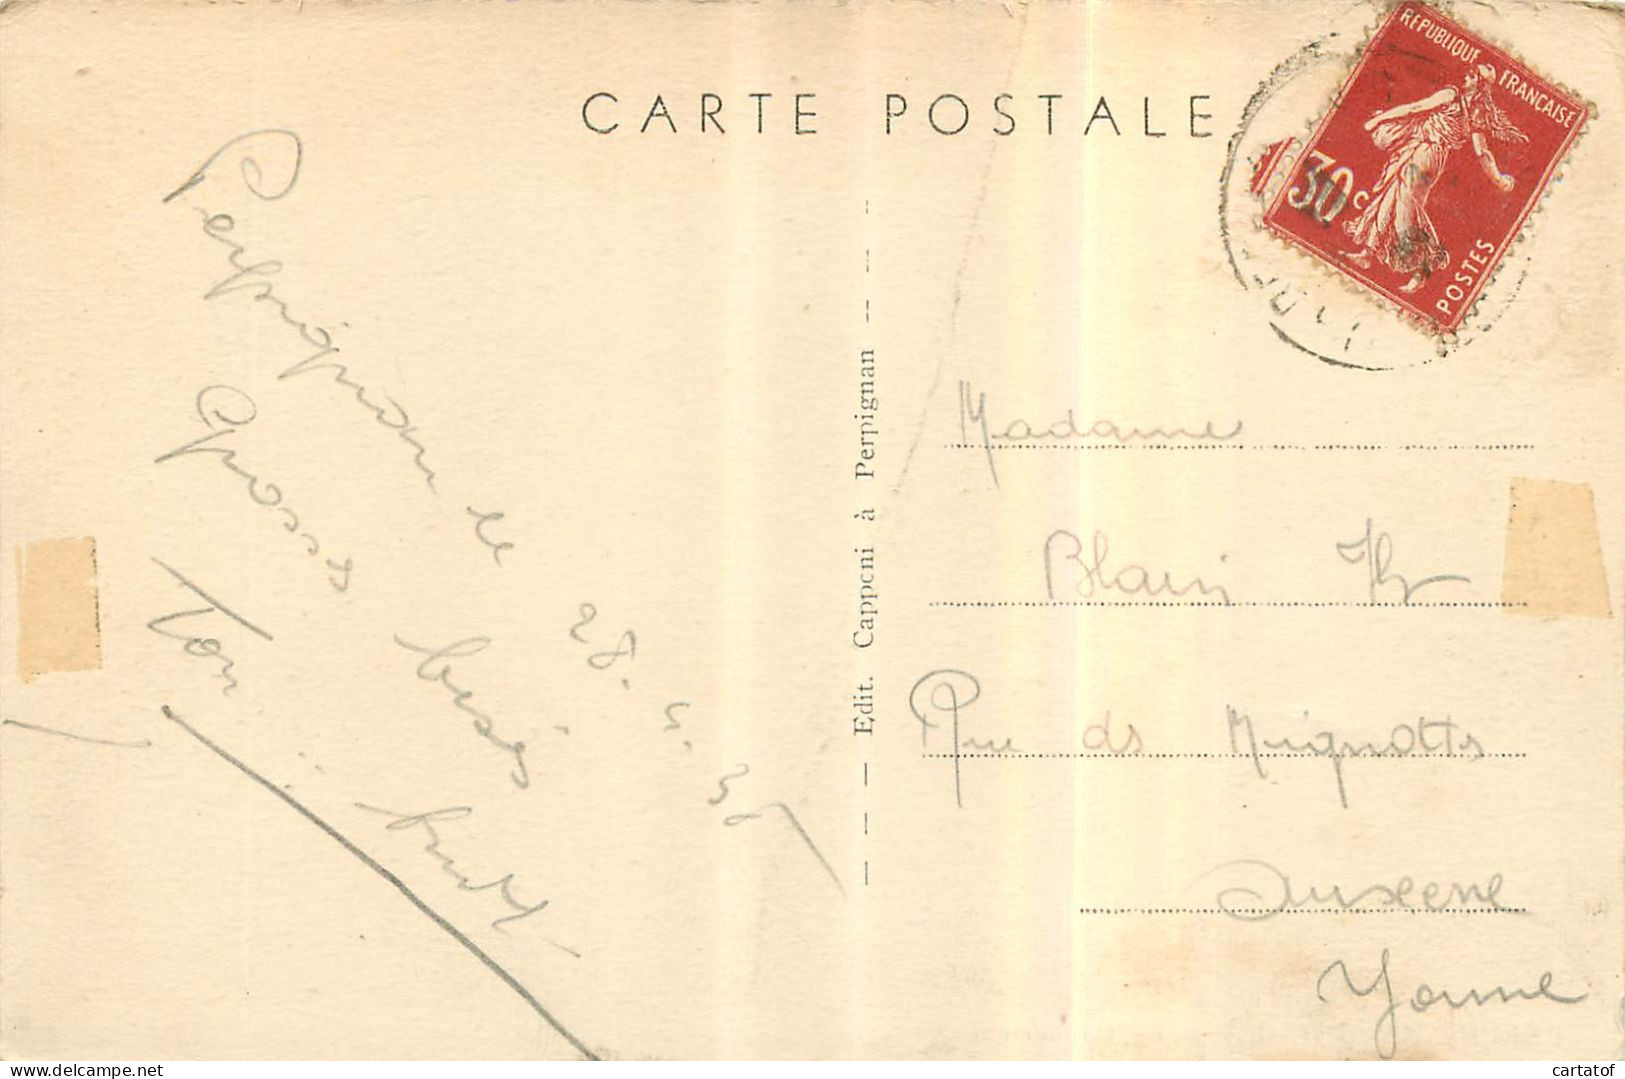 CARTE POSTALE
REPUBLIQUE FRANÇAISE
30c
POSTES
Perpignan le 28.4.38
Grosses bises
Ton
Edit. Capponi à Perpignan
Madame
Blain
Rue ds Mignotts
Auxerre
Yonne
cartatof